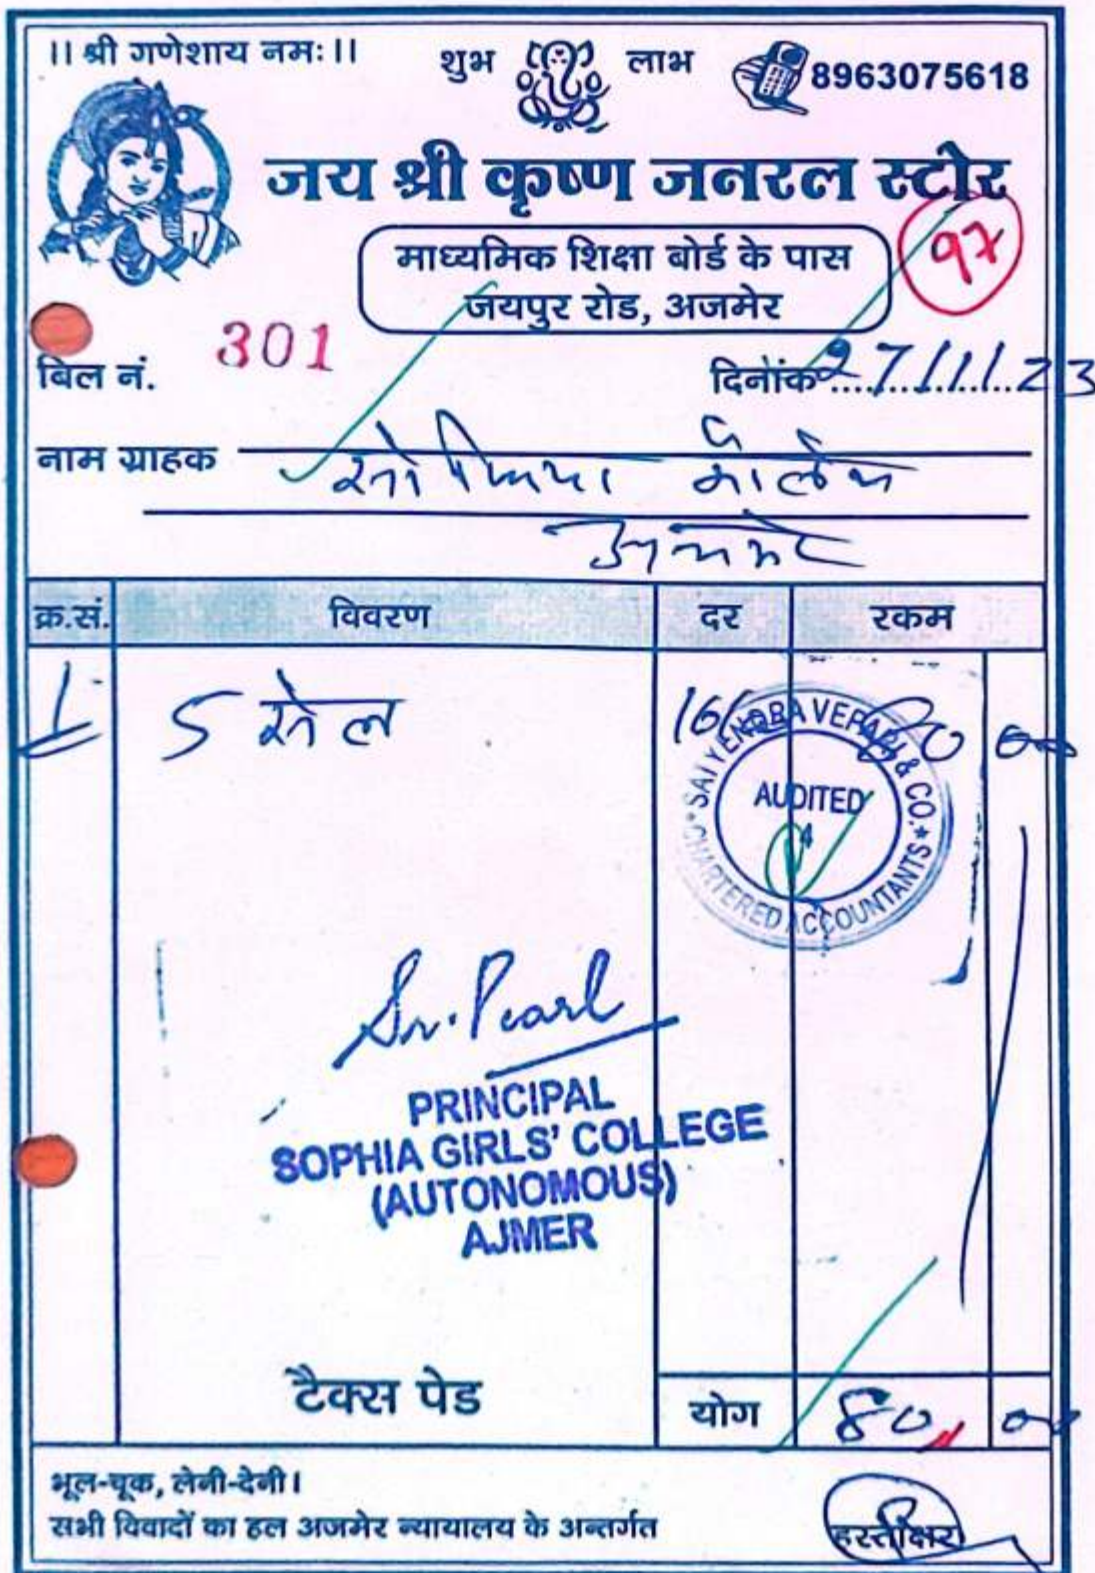 ।। श्री गणेशाय नमः ।।
शुभ लाभ
8963075618
जय श्री कृष्ण जनरल स्टोर
97
माध्यमिक शिक्षा बोर्ड के पास
जयपुर रोड, अजमेर
बिल नं. 301
दिनांक 27/11/23
नाम ग्राहक सोफिया कॉलेज
अजमेर
क्र.सं. विवरण दर रकम
1 5 सेल 80 00
SATYENDRA VEPARI & CO.
CHARTERED ACCOUNTANTS
AUDITED
Sr. Pearl
PRINCIPAL
SOPHIA GIRLS' COLLEGE
(AUTONOMOUS)
AJMER
टैक्स पेड
योग 80 00
भूल-चूक, लेनी-देनी।
सभी विवादों का हल अजमेर न्यायालय के अन्तर्गत
हस्ताक्षर